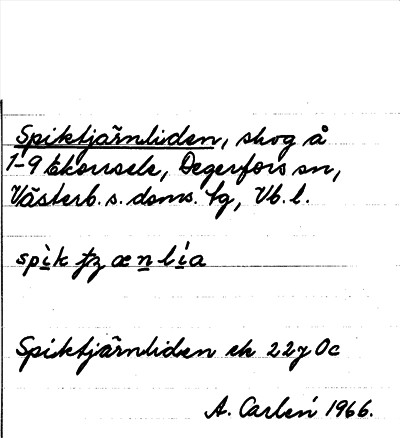 Spiktjärnliden, skog å
1-9 Ekorrsele, Degerfors sn,
Västerb. s. doms. lg, Vb. l.
Spiktjärnliden ek 22j 0c
A. Carlén 1966.